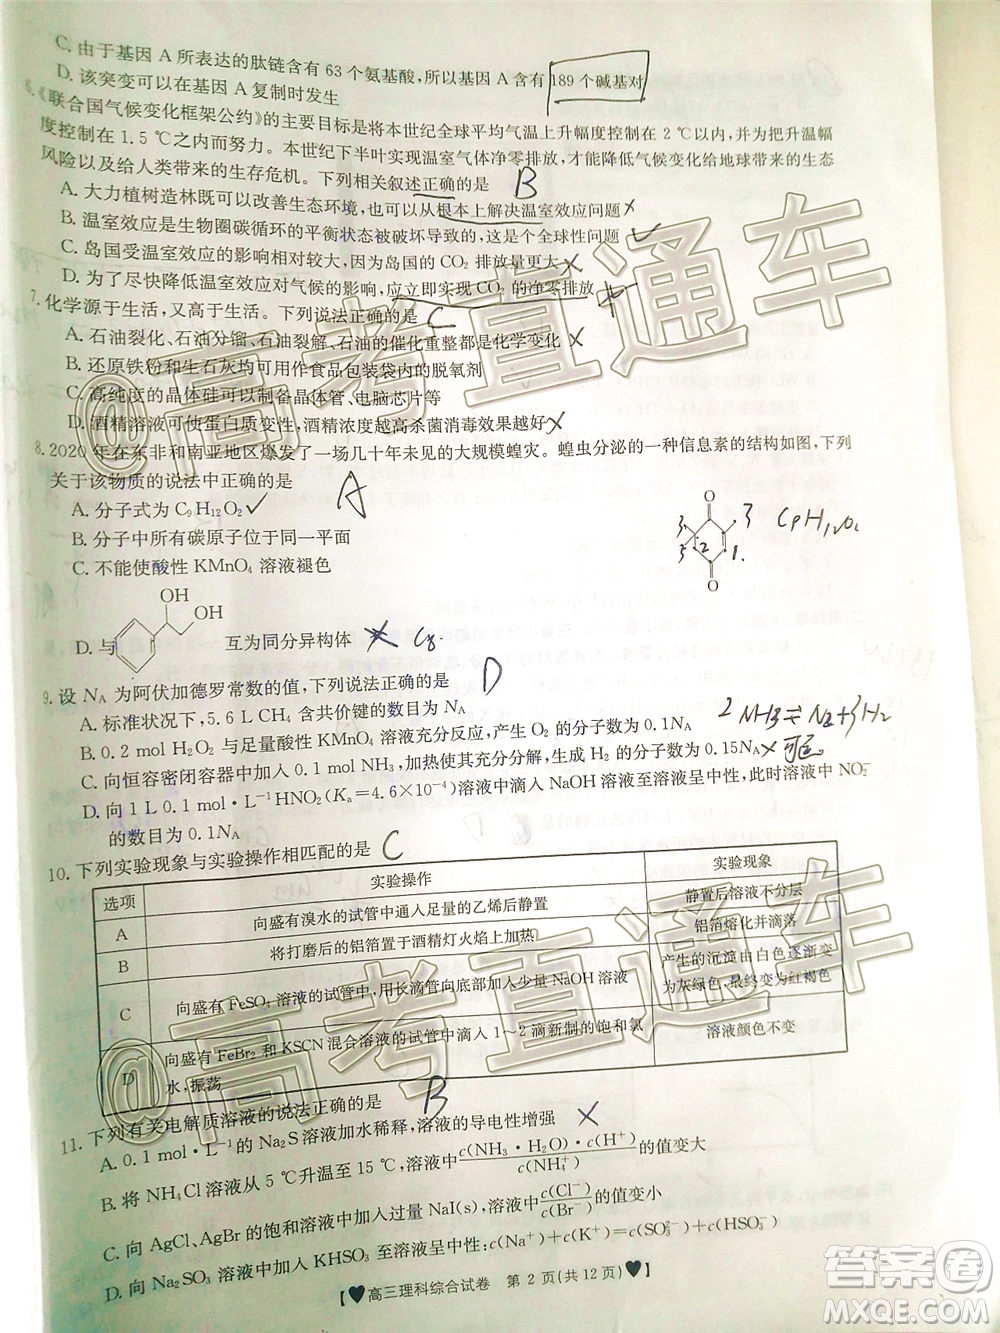 C. 由于基因 A 所表达的肽链含有 63 个氨基酸，所以基因 A 含有 189 个碱基对
D. 该突变可以在基因 A 复制时发生
6.《联合国气候变化框架公约》的主要目标是将本世纪全球平均气温上升幅度控制在 2 ℃以内，并为把升温幅
度控制在 1.5 ℃之内而努力。本世纪下半叶实现温室气体净零排放，才能降低气候变化给地球带来的生态
风险以及给人类带来的生存危机。下列相关叙述正确的是 B
A. 大力植树造林既可以改善生态环境，也可以从根本上解决温室效应问题 ×
B. 温室效应是生物圈碳循环的平衡状态被破坏导致的，这是个全球性问题 ✓
C. 岛国受温室效应的影响相对较大，因为岛国的 CO₂ 排放量更大 ×
D. 为了尽快降低温室效应对气候的影响，应立即实现 CO₂ 的净零排放
7. 化学源于生活，又高于生活。下列说法正确的是 C
A. 石油裂化、石油分馏、石油裂解、石油的催化重整都是化学变化 ×
B. 还原铁粉和生石灰均可用作食品包装袋内的脱氧剂 ×
C. 高纯度的晶体硅可以制备晶体管、电脑芯片等
D. 酒精溶液可使蛋白质变性，酒精浓度越高杀菌消毒效果越好 ×
8. 2020 年在东非和南亚地区爆发了一场几十年未见的大规模蝗灾。蝗虫分泌的一种信息素的结构如图，下列
关于该物质的说法中正确的是 A
A. 分子式为 C₉H₁₂O₂ ✓
B. 分子中所有碳原子位于同一平面
C. 不能使酸性 KMnO₄ 溶液褪色
O
O
3
3
3
2
1.
OH
OH
D. 与 互为同分异构体 × C8.
9. 设 N_A 为阿伏加德罗常数的值，下列说法正确的是 D
A. 标准状况下，5.6 L CH₄ 含共价键的数目为 N_A
B. 0.2 mol H₂O₂ 与足量酸性 KMnO₄ 溶液充分反应，产生 O₂ 的分子数为 0.1N_A
2NH3⇌N2+3H2
C. 向恒容密闭容器中加入 0.1 mol NH₃，充分分解，生成 H₂ 的分子数为 0.15N_A ×
D. 向 1 L 0.1 mol·L⁻¹HNO₂(Kₐ=4.6×10⁻⁴)溶液中滴加 NaOH 溶液至溶液呈中性，此时溶液中 NO₂⁻
的数目为 0.1N_A
10. 下列实验现象与实验操作相匹配的是 C
选项 实验操作 实验现象
A 向盛有溴水的试管中通入足量的乙烯后静置 静置后溶液不分层
B 将打磨后的铝箔置于酒精灯火焰上加热 铝箔熔化并滴落
C 向盛有 FeSO₄ 溶液的试管中，用长滴管向底部加入少量 NaOH 溶液 产生的沉淀由白色逐渐变
为灰绿色，最终变为红褐色
D 向盛有 FeBr₂ 和 KSCN 混合溶液的试管中滴入 1～2 滴新制的饱和氯
水，振荡 溶液颜色不变
11. 下列有关电解质溶液的说法正确的是 B
A. 0.1 mol·L⁻¹ 的 Na₂S 溶液加水稀释，溶液的导电性增强 ×
B. 将 NH₄Cl 溶液从 5 ℃升温至 15 ℃，溶液中 c(NH₃·H₂O)·c(H⁺)/c(NH₄⁺) 的值变大
C. 向 AgCl、AgBr 的饱和溶液中加入过量 NaI(s)，溶液中 c(Cl⁻)/c(Br⁻) 的值变小
D. 向 Na₂SO₃ 溶液中加入 KHSO₃ 至溶液呈中性：c(Na⁺)+c(K⁺)=c(SO₃²⁻)+c(HSO₃⁻)
【♥高三理科综合试卷 第 2 页(共 12 页)♥】
@高考直通车
@高考直通车
答案圈
MXQE.COM